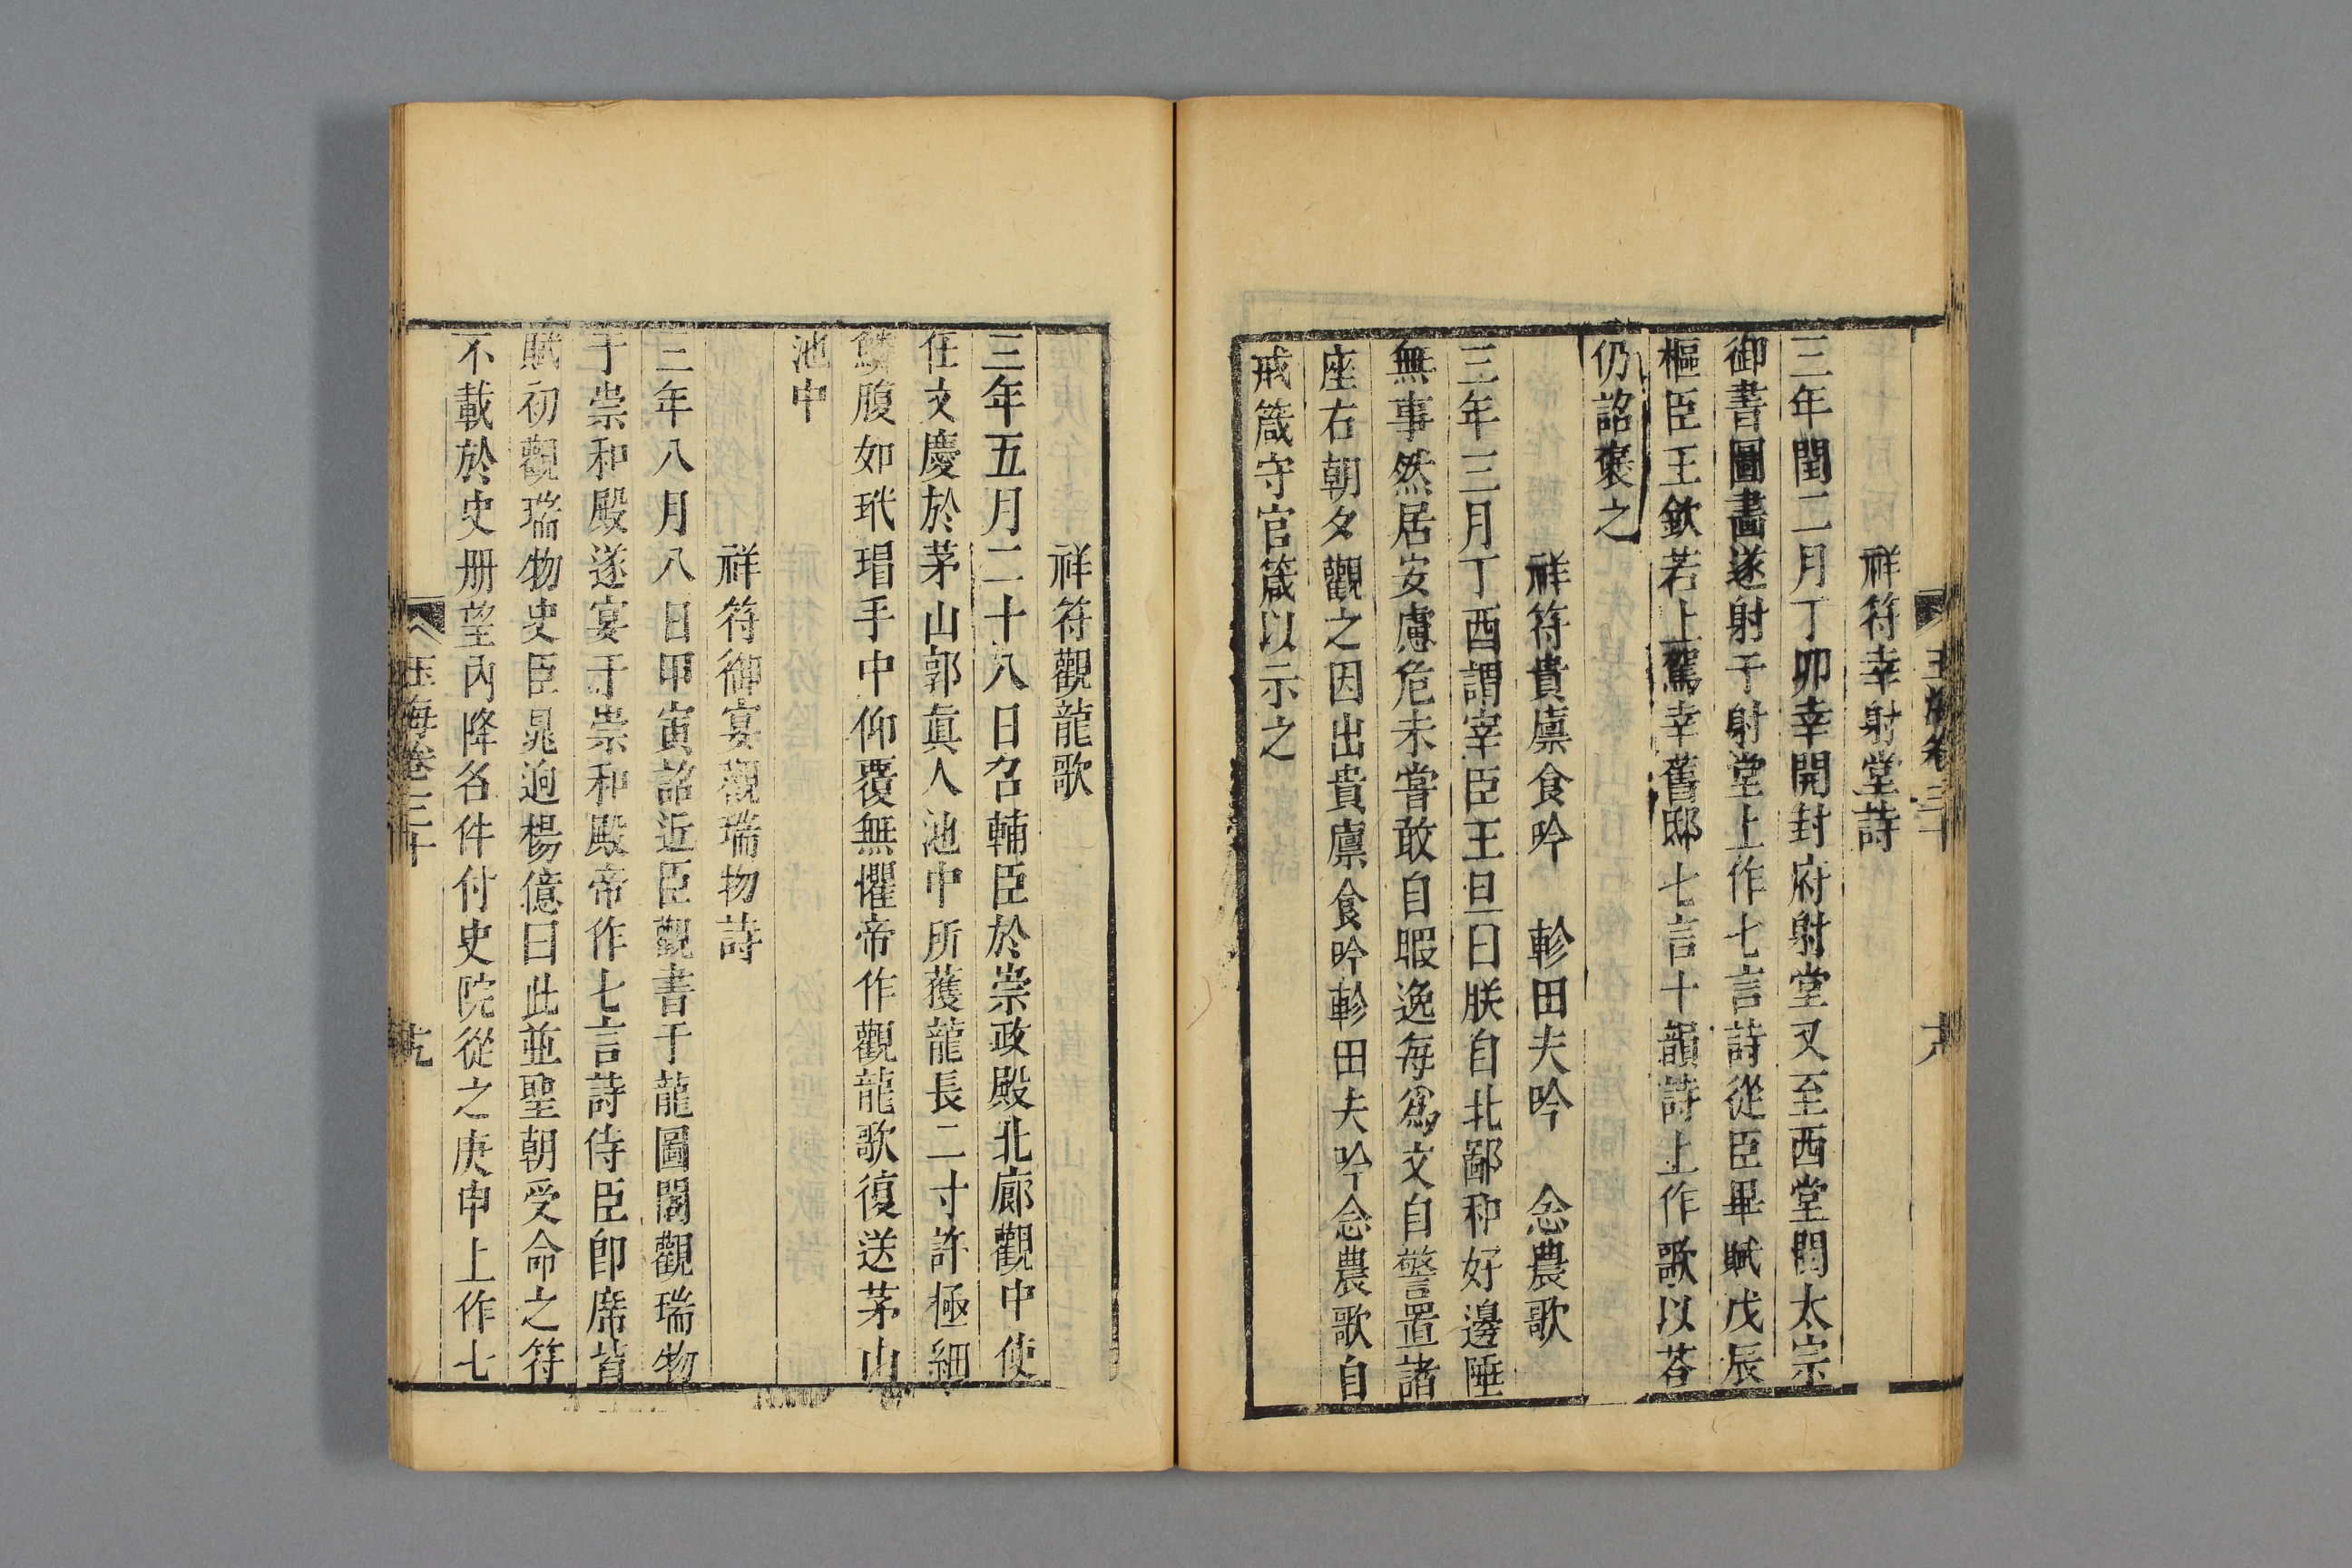 玉海卷三十
十八
祥符幸射堂詩
三年閏二月丁卯幸開封府射堂又至西堂閱太宗
御書圖畫遂射于射堂上作七言詩從臣畢賦戊辰
樞臣王欽若上駕幸舊邸七言十韻詩上作歌以荅
仍詔襃之
祥符貴廪食吟　軫田夫吟　念農歌
三年三月丁酉謂宰臣王旦曰朕自北鄙和好邊陲
無事然居安慮危未嘗敢自暇逸每爲文自警置諸
座右朝夕觀之因出貴廪食吟軫田夫吟念農歌自
戒箴守官箴以示之
祥符觀龍歌
三年五月二十八日召輔臣於崇政殿北廊觀中使
任文慶於茅山郭眞人池中所獲龍長二寸許極細
鱗腹如玳瑁手中仰覆無懼帝作觀龍歌復送茅山
池中
祥符御宴觀瑞物詩
三年八月八日甲寅詔近臣觀書于龍圖閣觀瑞物
于崇和殿遂宴于崇和殿帝作七言詩侍臣卽席皆
賦初觀瑞物史臣晁逈楊億曰此並聖朝受命之符
不載於史册望內降名件付史院從之庚申上作七
玉海卷三十
十九